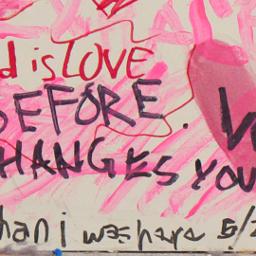 d is LOVE
BEFORE. W
HANGES YOU
han i was here 5/2